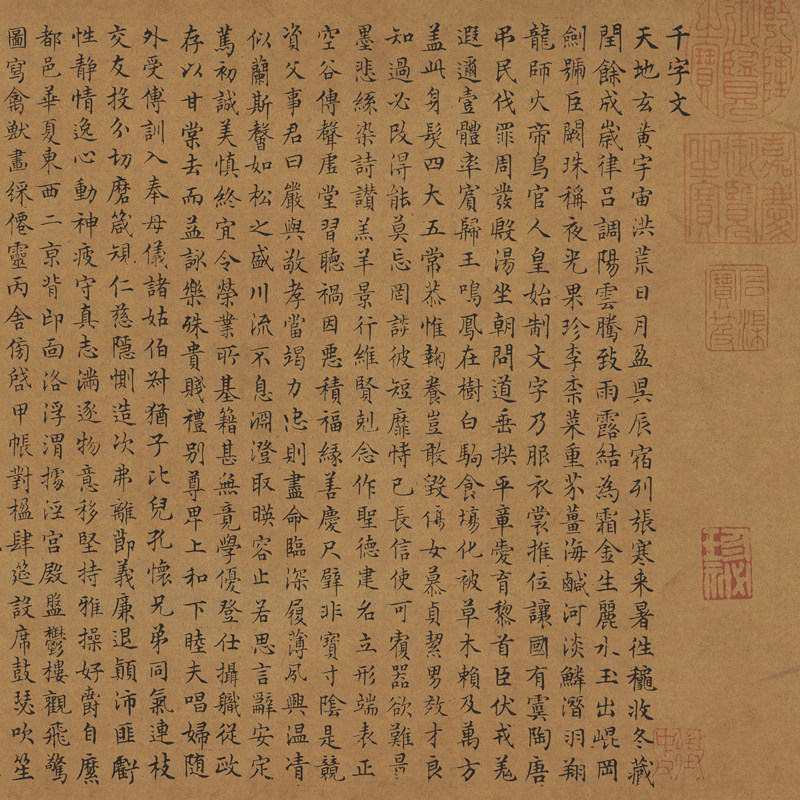 千字文
天地玄黃宇宙洪荒日月盈昃辰宿列張寒来暑徃穐收冬藏
閏餘成歲律呂調陽雲騰致雨露結為霜金生麗水玉出崐岡
劍號巨闕珠稱夜光果珍李柰菜重芥薑海鹹河淡鱗潛羽翔
龍師火帝鳥官人皇始制文字乃服衣裳推位讓國有虞陶唐
吊民伐罪周發殷湯坐朝問道垂拱平章愛育黎首臣伏戎羌
遐邇壹體率賓歸王鳴鳳在樹白駒食場化被草木賴及萬方
盖此身髮四大五常恭惟鞠養豈敢毀傷女慕貞絜男效才良
知過必改得能莫忘罔談彼短靡恃己長信使可覆器欲難量
墨悲絲染詩讃羔羊景行維賢剋念作聖德建名立形端表正
空谷傳聲虛堂習聽禍因惡積福緣善慶尺璧非寶寸陰是競
資父事君曰嚴與敬孝當竭力忠則盡命臨深履薄夙興温凊
似蘭斯馨如松之盛川流不息淵澄取暎容止若思言辭安定
篤初誠美慎終宜令榮業所基籍甚無竟學優登仕攝職從政
存以甘棠去而益詠樂殊貴賤禮别尊卑上和下睦夫唱婦随
外受傅訓入奉母儀諸姑伯叔猶子比兒孔懷兄弟同氣連枝
交友投分切磨箴規仁慈隱惻造次弗離節義廉退顛沛匪虧
性静情逸心動神疲守真志滿逐物意移堅持雅操好爵自縻
都邑華夏東西二京背邙面洛浮渭據涇宮殿盤鬱樓觀飛驚
圖寫禽獸畫綵僊靈丙舍傍啓甲帳對楹肆筵設席鼓瑟吹笙